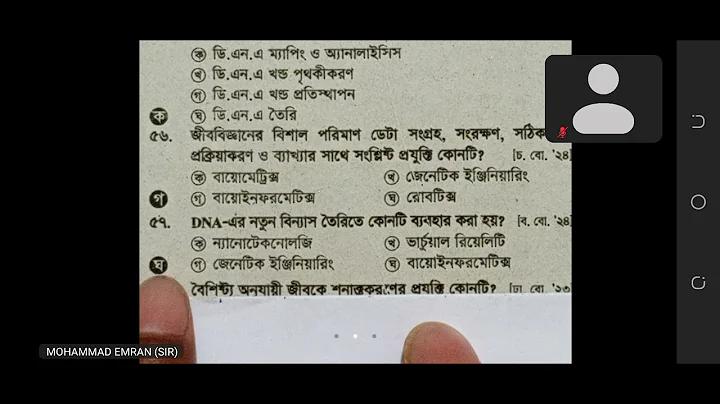 ক ডি.এন.এ ম্যাপিং ও অ্যানালাইসিস
খ ডি.এন.এ খন্ড পৃথকীকরণ
গ ডি.এন.এ খন্ড প্রতিস্থাপন
ক ঘ ডি.এন.এ তৈরি
৫৬. জীববিজ্ঞানের বিশাল পরিমাণ ডেটা সংগ্রহ, সংরক্ষণ, সঠিক
প্রক্রিয়াকরণ ও ব্যাখ্যার সাথে সংশ্লিষ্ট প্রযুক্তি কোনটি? [চ. বো. '২৪]
ক বায়োমেট্রিক্স খ জেনেটিক ইঞ্জিনিয়ারিং
গ গ বায়োইনফরমেটিক্স ঘ রোবটিক্স
৫৭. DNA-এর নতুন বিন্যাস তৈরিতে কোনটি ব্যবহার করা হয়? [ব. বো. '২৪]
ক ন্যানোটেকনোলজি খ ভার্চুয়াল রিয়েলিটি
ঘ গ জেনেটিক ইঞ্জিনিয়ারিং ঘ বায়োইনফরমেটিক্স
বৈশিষ্ট্য অনুযায়ী জীবকে শনাক্তকরণের প্রযুক্তি কোনটি?
MOHAMMAD EMRAN (SIR)